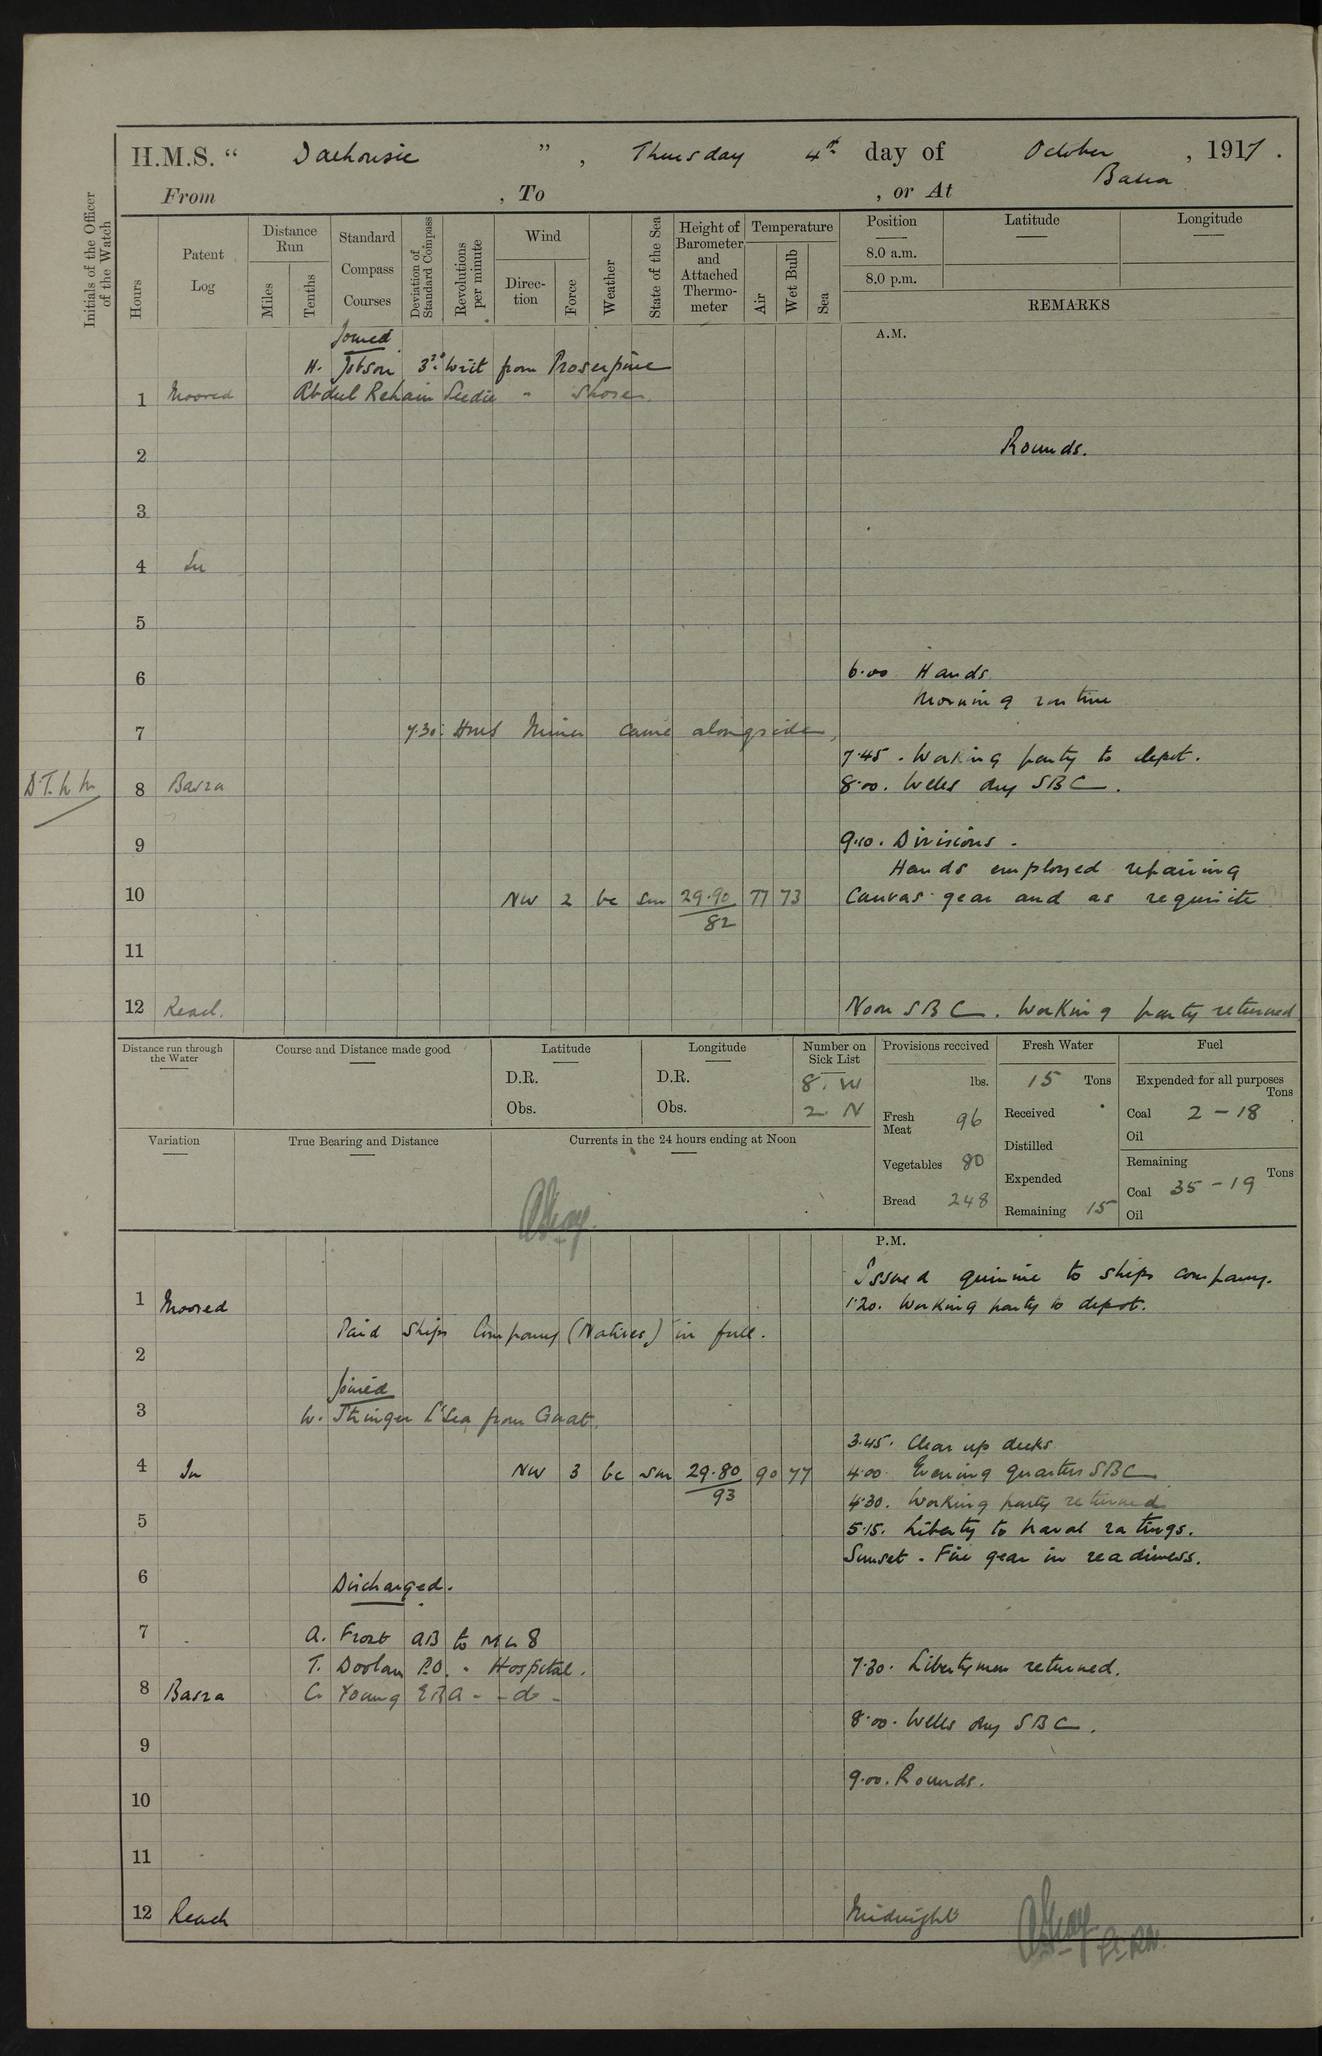 H.M.S. “ Dalhousie ” , Thursday 4th day of October , 1917 .
From , To , or At Basra
Initials of the Officer of the Watch
Hours
Patent Log
Distance Run
Miles
Tenths
Standard Compass Courses
Deviation of Standard Compass
Revolutions per minute
Wind
Direction
Force
Weather
State of the Sea
Height of Barometer and Attached Thermometer
Temperature
Air
Wet Bulb
Sea
Position Latitude Longitude
8.0 a.m.
8.0 p.m.
REMARKS
A.M.
Joined
H. Jobson 3rd Writ from Proserpine
1 Moored Abdul Rehain Seedie " Shore.
2 Rounds.
3
4 In
5
6 6.00 Hands
Morning routine
7 7.30: HMS Miner came alongside,
7.45. Working party to depot.
8 Basra 8.00. Wells dry SBC.
9 9.10. Divisions.
Hands employed repairing
10 NW 2 bc sm 29.90 77 73 Canvas gear and as requisite
82
11
12 Reach. Noon SBC. Working party returned
Distance run through the Water
Course and Distance made good
Latitude
D.R.
Obs.
Longitude
D.R.
Obs.
Number on Sick List
8. W
2. N
Provisions received
lbs.
Fresh Meat 96
Vegetables 80
Bread 248
Fresh Water
15 Tons
Received
Distilled
Expended
Remaining 15
Fuel
Expended for all purposes
Tons
Coal 2 - 18
Oil
Remaining
Tons
Coal 35 - 19
Oil
Variation
True Bearing and Distance
Currents in the 24 hours ending at Noon
P.M.
Issued quinine to ships company.
1 Moored 1.20. Working party to depot.
Paid Ships Company (Natives) in full.
2
Joined
3 W. Stringer L Sea from Gnat.
3.45. Clear up decks
4 In NW 3 bc sm 29.80 90 77 4.00 Evening quarters SBC
93
4.30. Working party returned
5 5.15. Liberty to naval ratings.
Sunset. Fire gear in readiness.
6 Discharged.
7 A. Frost AB to ML 8
T. Doolan P.O. " Hospital. 7.30. Libertymen returned.
8 Basra C. Young ERA - - do -
8.00. Wells dry SBC.
9
9.00. Rounds.
10
11
12 Reach Midnight
Lt. RN.